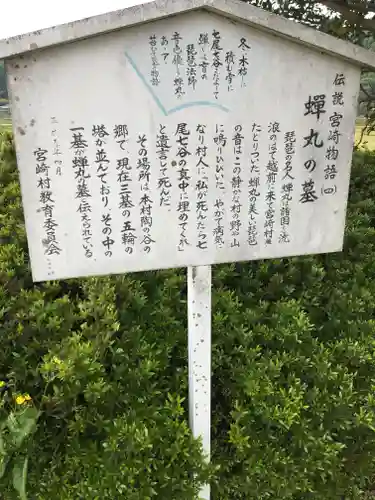 伝説 宮崎村物語(四)
蟬丸の墓
琵琶の名人 蟬丸は諸国を流
浪のはて越前に来て宮崎村に
たどりついた 蟬丸の美しい琵琶
の音はこの静かな村の野や山
に鳴りひびいた。やがて病気に
なり村人に「私が死んだら七
尾七谷の真中に埋めてくれ」
と遺言して死んだ。
その場所は本村陶の谷の
郷で、現在三基の五輪の
塔が立っており、その中の
一基が蟬丸の墓と伝えられている
宮崎村教育委員会
冬、木枯らし
積む雪に
蟬しぐれ
琵琶法師
七尾七谷